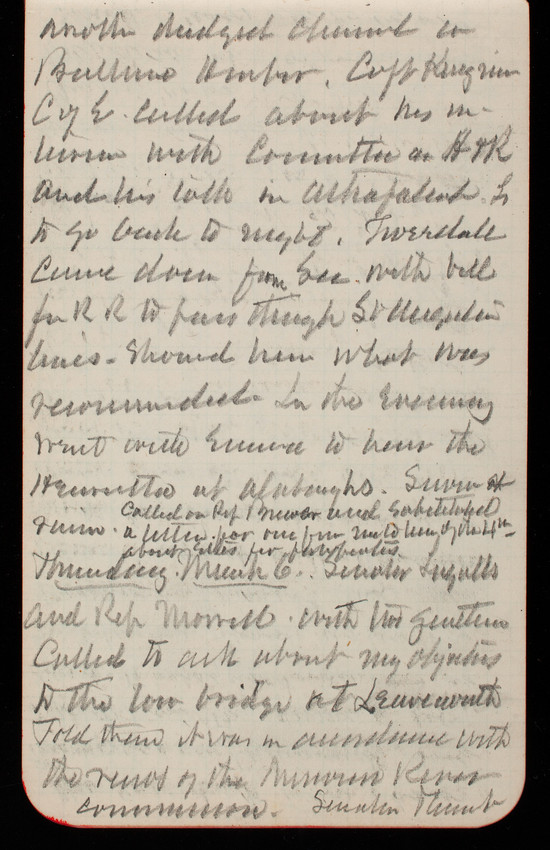 another dredged channel in
Baltimore Harbor. Capt
C of E called about his in-
terview with Committee on R & R
and his talk in
to go back to night.
came down from Sec. with bill
for R R to pass through St Augustine
lines. Showed him what was
recommended. In the Evening
went with Emma to hear the
Henrietta at Albaughs. Snow &
rain. Called on Rep Brewer and substituted
a letter for one from me to him of the 4th
about
Thursday March 6. Senator Ingalls
and Rep Morrill with two gentlemen
Called to ask about my objections
to the low bridge at Leavenworth
Told them it was in accordance with
the views of the Missouri River
commission. Senator Plumb